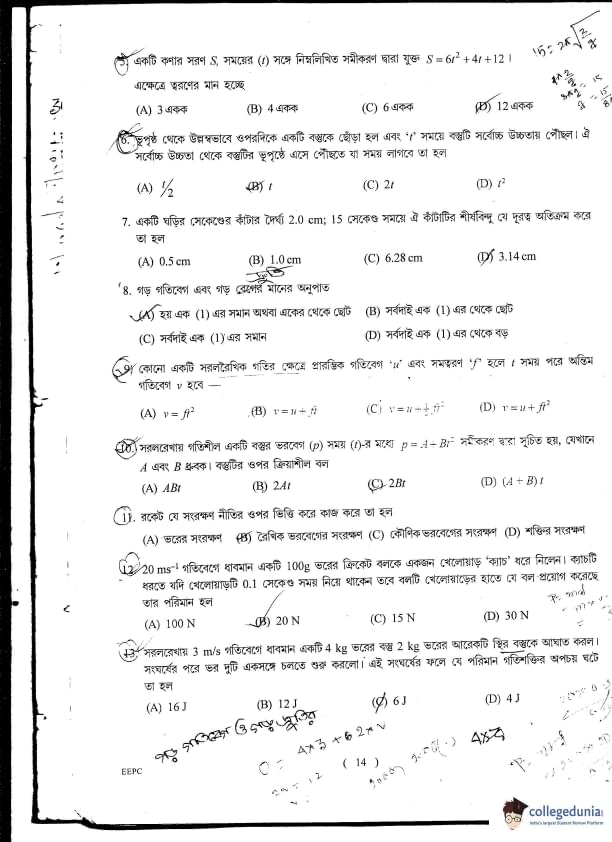 5. একটি কণার সরণ S, সময়ের (t) সঙ্গে নিম্নলিখিত সমীকরণ দ্বারা যুক্ত S = 6t² + 4t + 12 ।
এক্ষেত্রে ত্বরণের মান হচ্ছে
(A) 3 একক (B) 4 একক (C) 6 একক (D) 12 একক
6. ভূপৃষ্ঠ থেকে উল্লম্বভাবে ওপরদিকে একটি বস্তুকে ছোঁড়া হল এবং ‘t’ সময়ে বস্তুটি সর্বোচ্চ উচ্চতায় পৌঁছল। ঐ
সর্বোচ্চ উচ্চতা থেকে বস্তুটির ভূপৃষ্ঠে এসে পৌঁছতে যা সময় লাগবে তা হল
(A) t/2 (B) t (C) 2t (D) t²
7. একটি ঘড়ির সেকেণ্ডের কাঁটার দৈর্ঘ্য 2.0 cm; 15 সেকেণ্ড সময়ে ঐ কাঁটাটির শীর্ষবিন্দু যে দূরত্ব অতিক্রম করে
তা হল
(A) 0.5 cm (B) 1.0 cm (C) 6.28 cm (D) 3.14 cm
8. গড় গতিবেগ এবং গড় বেগের মানের অনুপাত
(A) হয় এক (1) এর সমান অথবা একের থেকে ছোট (B) সর্বদাই এক (1) এর থেকে ছোট
(C) সর্বদাই এক (1) এর সমান (D) সর্বদাই এক (1) এর থেকে বড়
9. কোনো একটি সরলরৈখিক গতির ক্ষেত্রে প্রারম্ভিক গতিবেগ ‘u’ এবং সমত্বরণ ‘f’ হলে t সময় পরে অন্তিম
গতিবেগ v হবে —
(A) v = ft² (B) v = u + ft (C) v = u + ½ ft² (D) v = u + ft²
10. সরলরেখায় গতিশীল একটি বস্তুর ভরবেগ (p) সময় (t)-র মধ্যে p = A + Bt² সমীকরণ দ্বারা সূচিত হয়, যেখানে
A এবং B ধ্রুবক। বস্তুটির ওপর ক্রিয়াশীল বল
(A) ABt (B) 2At (C) 2Bt (D) (A + B) t
11. রকেট যে সংরক্ষণ নীতির ওপর ভিত্তি করে কাজ করে তা হল
(A) ভরের সংরক্ষণ (B) রৈখিক ভরবেগের সংরক্ষণ (C) কৌণিক ভরবেগের সংরক্ষণ (D) শক্তির সংরক্ষণ
12. 20 ms⁻¹ গতিবেগে ধাবমান একটি 100g ভরের ক্রিকেট বলকে একজন খেলোয়াড় ‘ক্যাচ’ ধরে নিলেন। ক্যাচটি
ধরতে যদি খেলোয়াড়টি 0.1 সেকেণ্ড সময় নিয়ে থাকেন তবে বলটি খেলোয়াড়ের হাতে যে বল প্রয়োগ করেছে
তার পরিমান হল
(A) 100 N (B) 20 N (C) 15 N (D) 30 N
13. সরলরেখায় 3 m/s গতিবেগে ধাবমান একটি 4 kg ভরের বস্তু 2 kg ভরের আরেকটি স্থির বস্তুকে আঘাত করল।
সংঘর্ষের পরে ভর দুটি একসঙ্গে চলতে শুরু করলো। এই সংঘর্ষের ফলে যে পরিমান গতিশক্তির অপচয় ঘটে
তা হল
(A) 16 J (B) 12 J (C) 6 J (D) 4 J
EEPC ( 14 )
collegedunia
India's largest Student Review Platform